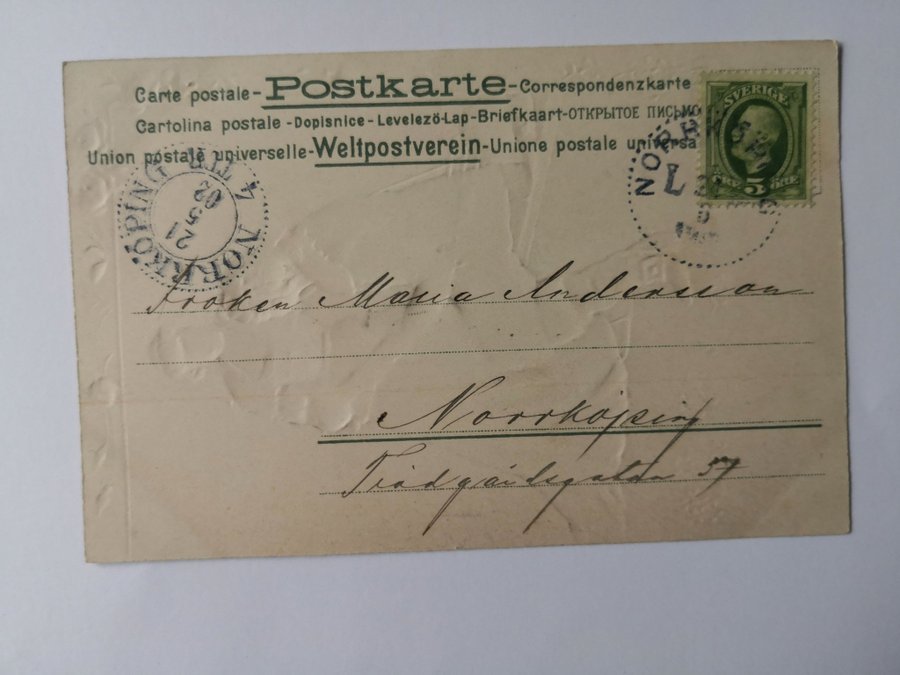 Carte postale-Postkarte-Correspondenzkarte
Cartolina postale-Dopisnice-Levelező-Lap-Briefkaart-ОТКРЫТОЕ ПИСЬМО
Union postale universelle-Weltpostverein-Unione postale universa
SVERIGE
5 ÖRE
NORRKÖPING
L
NORRKÖPING
4 TUR
21
5
02
Fröken Maria Andersson
Norrköping
Trädgårdsgatan 37